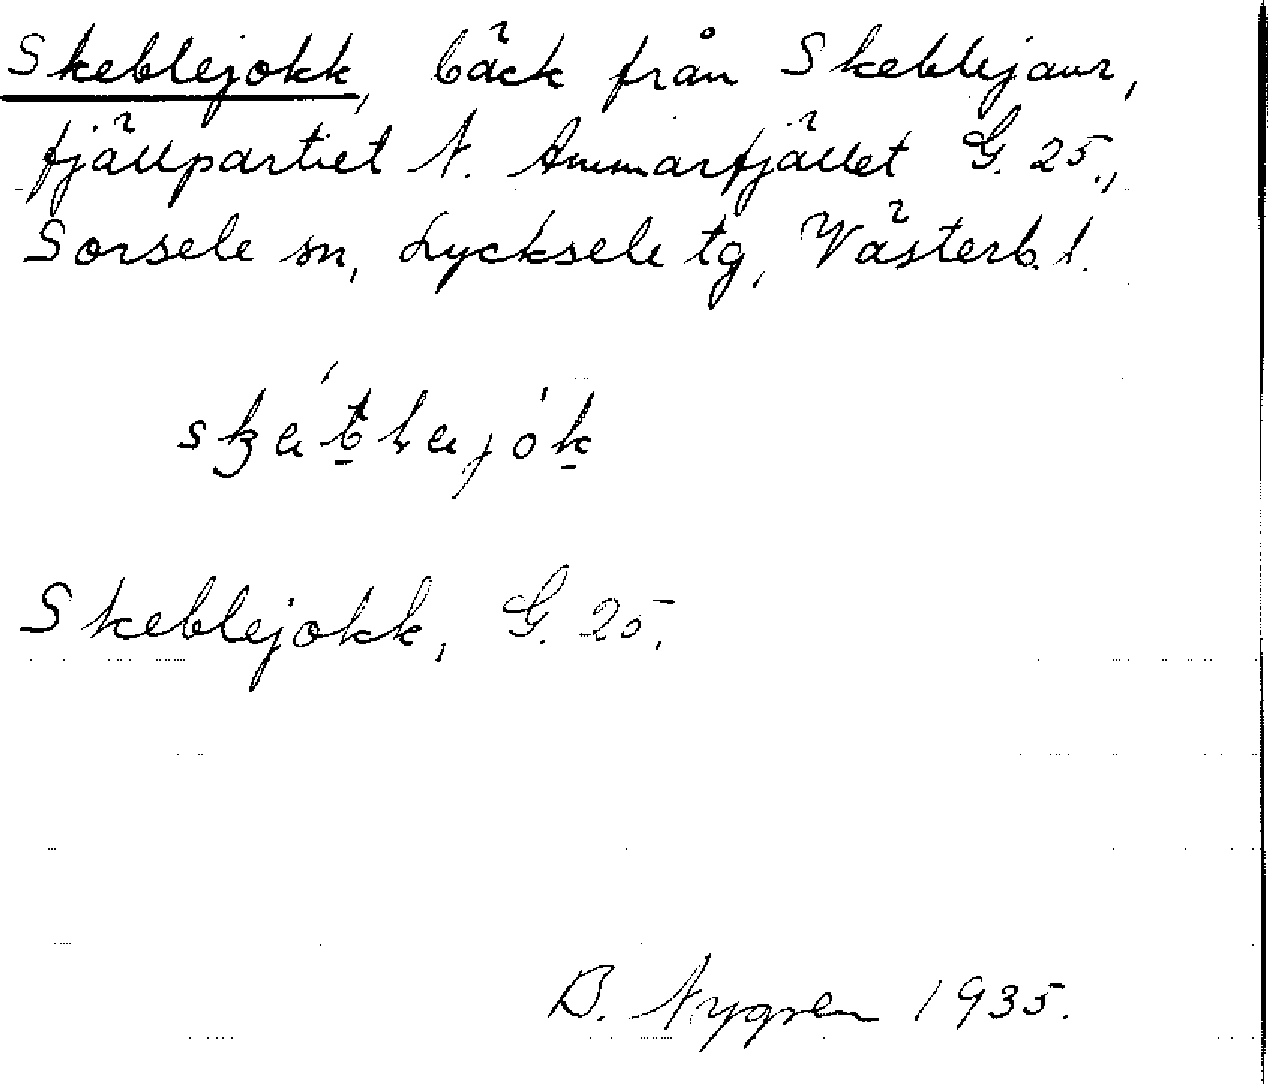 Skeblejokk, bäck från Skeblejaur,
fjällpartiet N. Ammarfjället G. 25.,
Sorsele sn, Lycksele tg, Västerb. l.
Skeblejokk, G. 25.
B. Nygren 1935.